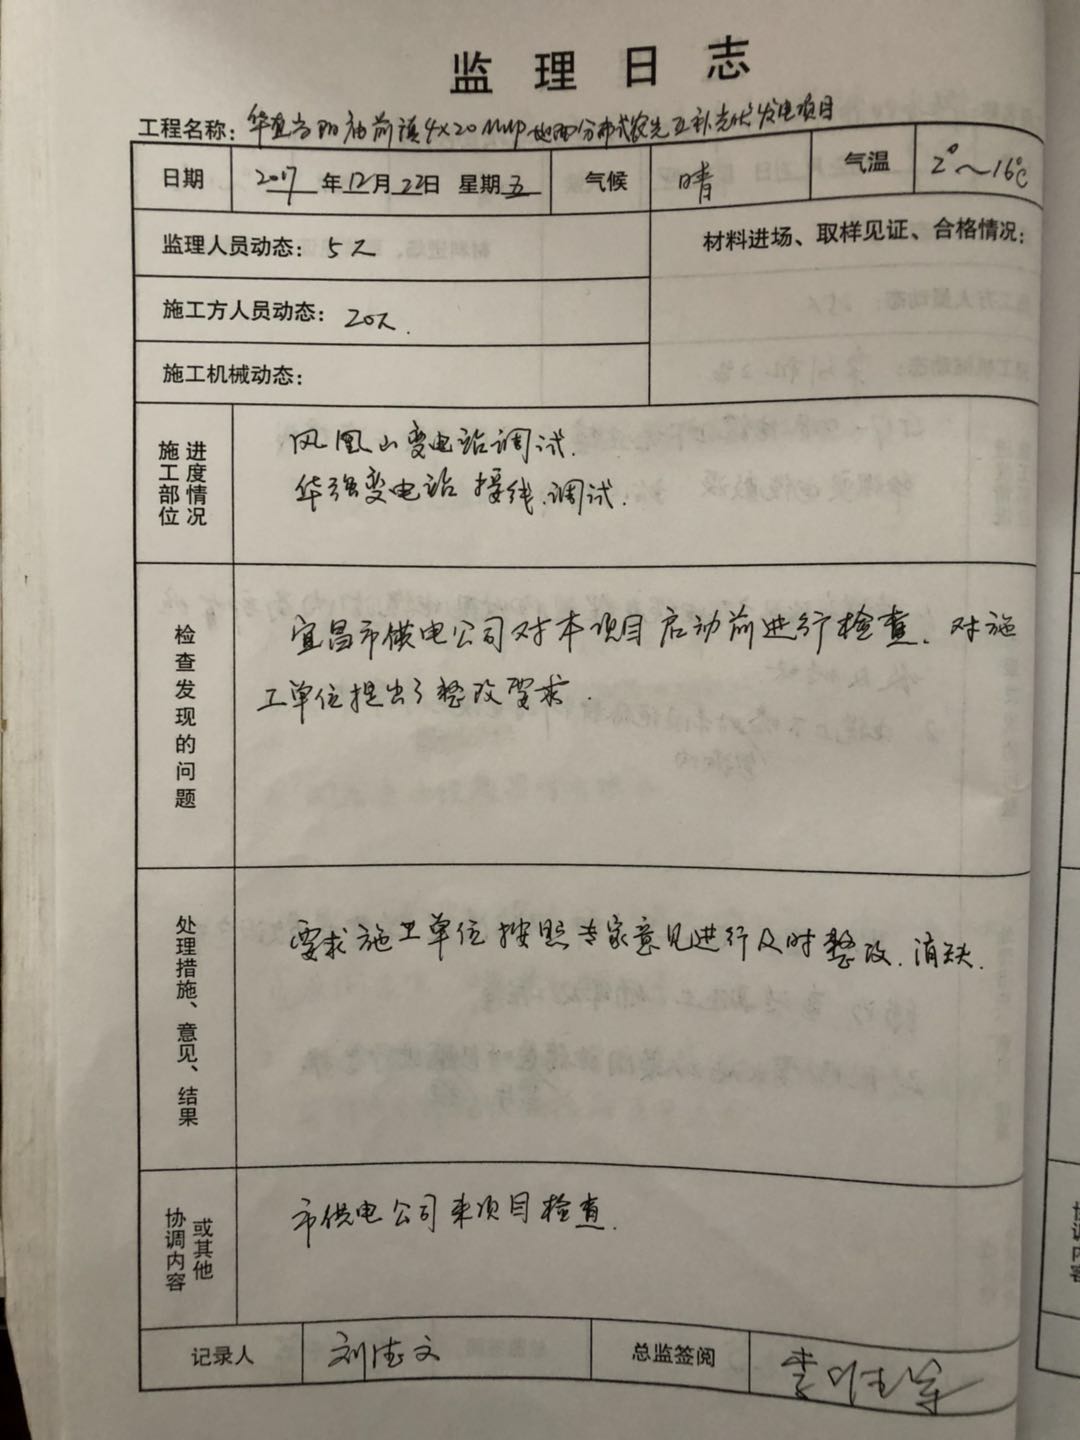 监理日志
工程名称：华宜当阳庙前镇4×20MWp地面分布式农光互补光伏发电项目
日期 2017年12月22日 星期五 气候 晴 气温 2°～16℃
监理人员动态：5人 材料进场、取样见证、合格情况：
施工方人员动态：20人.
施工机械动态：
施工部位进度情况
凤凰山变电站调试.
华强变电站接线.调试.
检查发现的问题
宜昌市供电公司对本项目启动前进行检查. 对施
工单位提出了整改要求.
处理措施、意见、结果
要求施工单位按照专家意见进行及时整改.消缺.
协调内容或其他
市供电公司来项目检查.
记录人 刘德文 总监签阅
协调内容